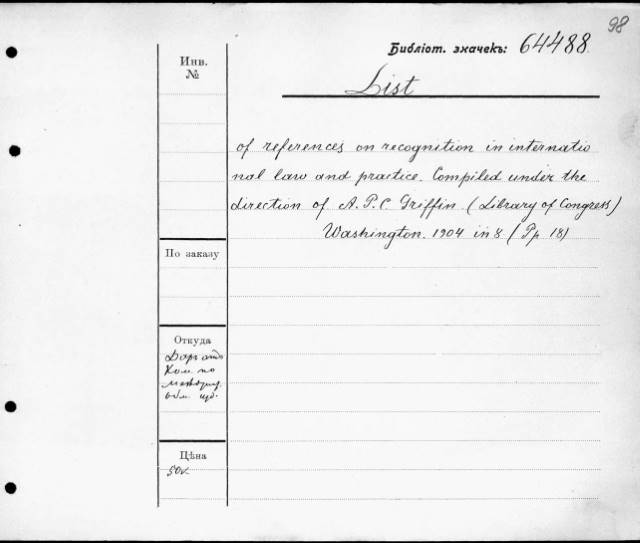 98
Библіот. значекъ: 64488
Инв.
№
List
of references on recognition in internatio
nal law and practice. Compiled under the
direction of A. P. C. Griffin (Library of Congress)
Washington. 1904 in 8 (Pp 18)
По заказу
Откуда
Даръ отъ
Ком. по
междунар.
обм. изд.
Цѣна
50к